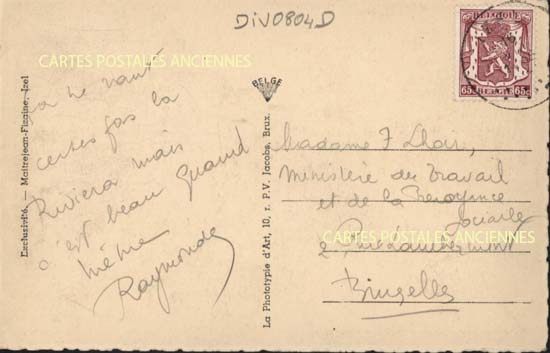 DIV0804D
CARTES POSTALES ANCIENNES
BELGIQUE BELGIE
65c 65c
BELGE
ça ne vaut
certes pas la
Riviera mais
c'est beau quand
même
Raymonde
Exclusivité. — Maitrejean-Finnine, Izel
La Phototypie d'Art, 10, r. P.V. Jacobs, Brux.
Madame F.
Ministère du Travail
et de la Prévoyance
Sociale
CARTES POSTALES ANCIENNES
2, Rue Lambermont
Bruxelles